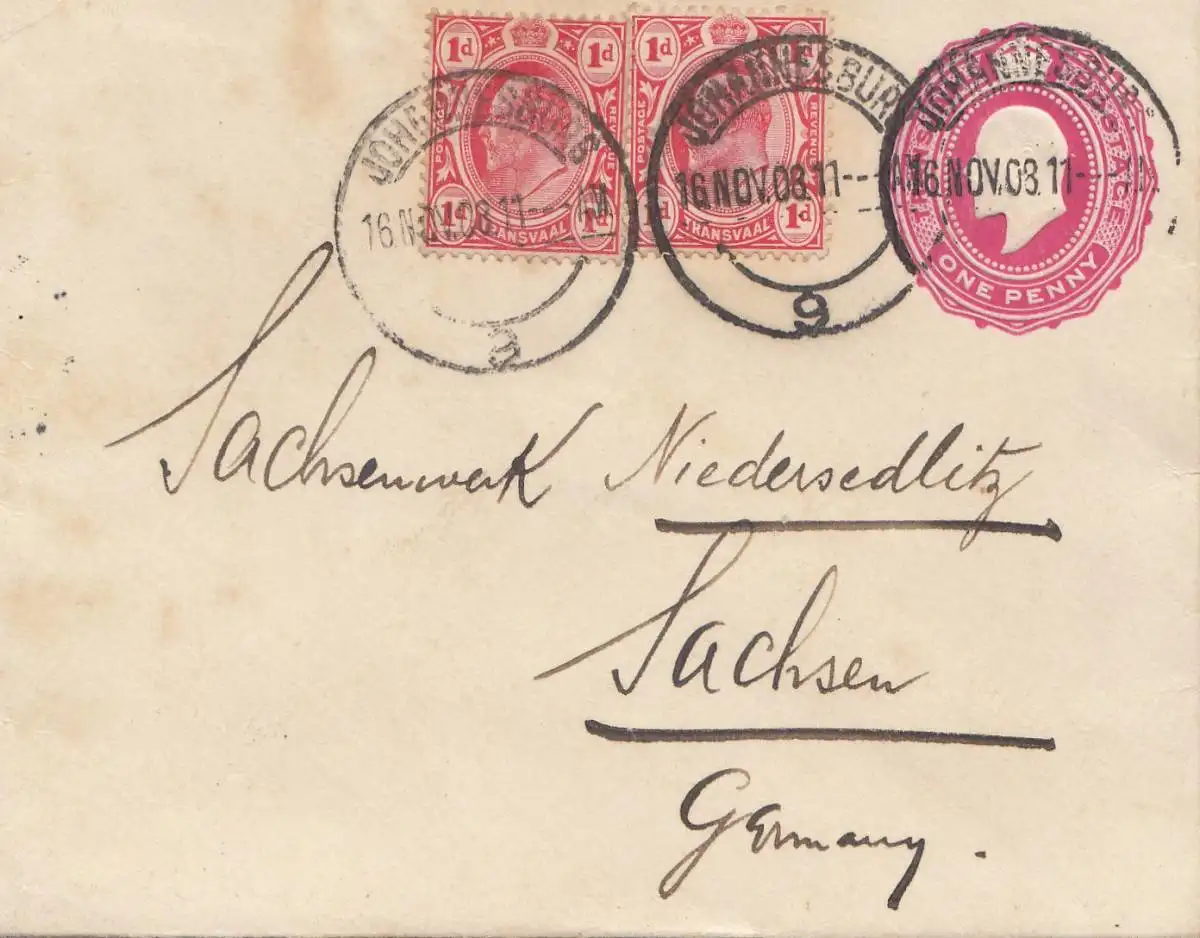 1d 1d
POSTAGE REVENUE
1d 1d
TRANSVAAL
1d 1d
POSTAGE REVENUE
1d
TRANSVAAL
ONE PENNY
16 NOV.08.11---AM
JOHANNESBUR
16.NOV.08.11---AM
9
JOHANNESB
16.NOV.08.11
Sachsenwerk Niedersedlitz
Sachsen
Germany.